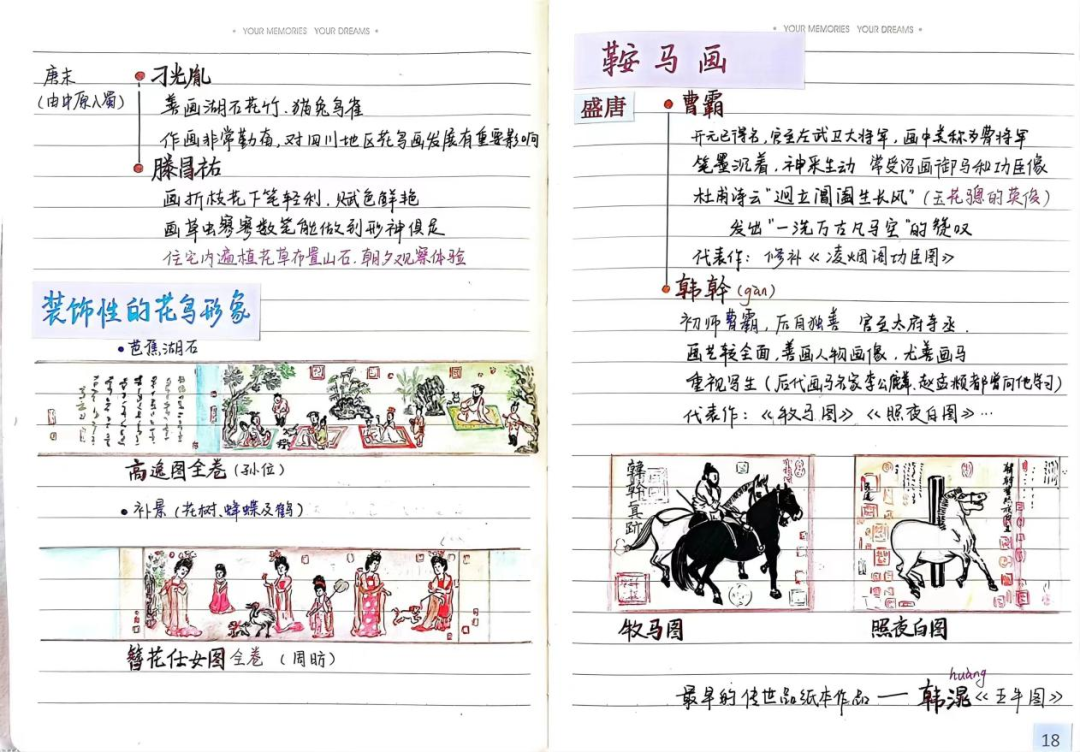 YOUR MEMORIES YOUR DREAMS
唐末
(由中原入蜀)
刁光胤
善画湖石花竹、猫兔鸟雀
作画非常勤奋,对四川地区花鸟画发展有重要影响
滕昌祐
画折枝花下笔轻利、赋色鲜艳
画草虫寥寥数笔能做到形神俱足
住宅内遍植花草布置山石、朝夕观察体验
装饰性的花鸟形象
芭蕉湖石
高逸图全卷(孙位)
补景(花树、蜂蝶及鹤)
簪花仕女图全卷(周昉)
YOUR MEMORIES YOUR DREAMS
鞍马画
盛唐
曹霸
开元已得名,官至左武卫大将军,画史美称为曹将军
笔墨沉着,神采生动 常受诏画御马和功臣像
杜甫诗云“迥立阊阖生长风”(玉花骢的英俊)
发出“一洗万古凡马空”的赞叹
代表作:修补《凌烟阁功臣图》
韩幹(gàn)
初师曹霸,后自独善 官至太府寺丞.
画艺较全面,善画人物画像,尤善画马
重视写生(后代画马名家李公麟、赵孟頫都曾向他学习)
代表作:《牧马图》《照夜白图》…
韓幹真跡
牧马图
照夜白图
huàng
最早的传世品纸本作品 — 韩滉《五牛图》
18